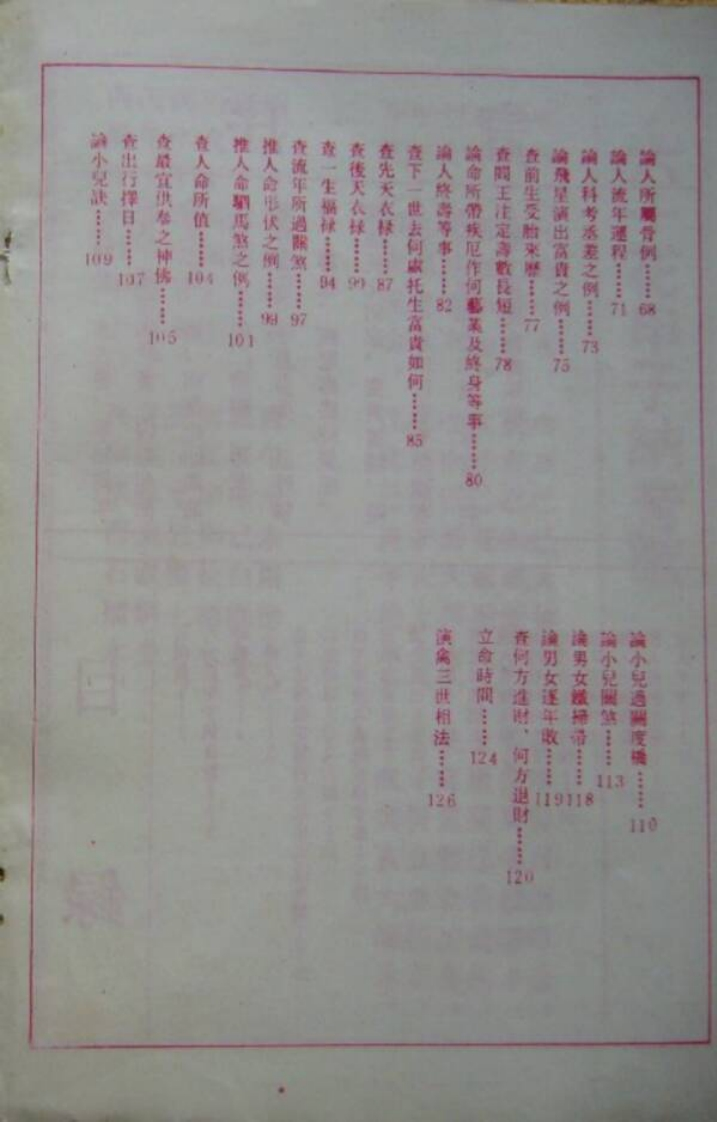 論人所屬骨例……68
論人流年運程……71
論人科考丞差之例……73
論飛星演出富貴之例……75
查前生受胎來歷……77
查閻王注定壽數長短……78
論命所帶疾厄作何藝業及終身等事……80
論人終壽等事……82
查下一世去何處托生富貴如何……85
查先天衣祿……87
查後天衣祿……90
查一生福祿……94
查流年所過關煞……97
推人命形伏之例……99
推人命駟馬煞之例……101
查人命所值……104
查最宜供奉之神佛……105
查出行擇日……107
論小兒訣……109
論小兒過關度橋……110
論小兒關煞……113
論男女鐵掃帚……118
論男女逐年敢……119
查何方進財、何方退財……120
立命時間……124
演禽三世相法……126
目
錄